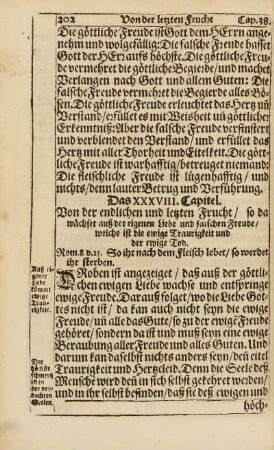 202 Von der letzten Frucht Cap.38.
Die göttliche Freude ist Gott dem HErrn ange-
nehm und wolgefällig: Die falsche Freude hasset
Gott der HErr auffs höchste. Die göttliche Freu-
de vermehret die göttliche Begierde/ und machet
Verlangen nach Gott und allem Guten: Die
falsche Freude vermehret die Begierde alles Bö-
sen. Die göttliche Freude erleuchtet das Hertz uñ
Verstand/ erfüllet es mit Weisheit uñ göttlicher
Erkenntniß: Aber die falsche Freude verfinstert
und verblendet den Verstand/ und erfüllet das
Hertz mit aller Thorheit und Eitelkeit. Die gött-
liche Freude ist warhafftig/ betreuget niemand:
Die fleischliche Freude ist lügenhafftig/ und
nichts/ denn lauter Betrug und Verführung.
Das XXXVIII. Capitel.
Von der endlichen und letzten Frucht/ so da
wächset auß der eigenen Liebe und falschen Freude/
welche ist die ewige Traurigkeit und
der ewige Tod.
Rom.8 v.13. So ihr nach dem Fleisch lebet/ so werdet
ihr sterben.
Auß eigener Liebe kömmt ewige Traurigkeit.
DRoben ist angezeiget/ daß auß der göttli-
chen ewigen Liebe wachse und entspringe
ewige Freude. Darauß folget/ wo die Liebe Got-
tes nicht ist/ da kan auch nicht seyn die ewige
Freude/ uñ alle das Gute/ so zu der ewige Freude
gehöret/ sondern da ist und muß seyn eine ewige
Beraubung aller Freude und alles Guten. Und
darum kan daselbst nichts anders seyn/ deñ eitel
Traurigkeit und Hertzeleid. Denn die Seele deß
Der höchste schmertz ist in der verdachten Seelen.
Mensche wird deñ in sich selbst gekehret werden/
und in ihr selbst befinden/ daß sie deß ewigen und
höch-